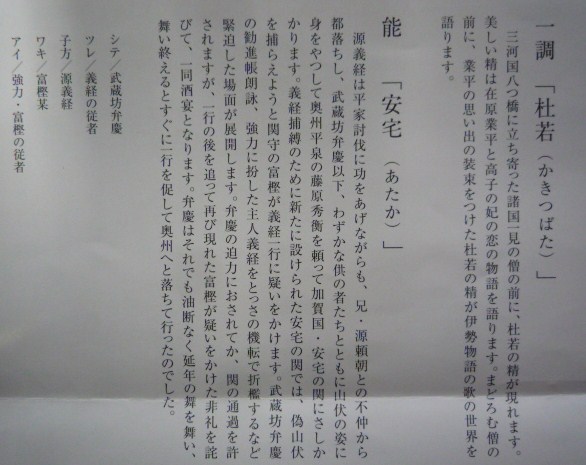 一調　「杜若（かきつばた）」
三河国八つ橋に立ち寄った諸国一見の僧の前に、杜若の精が現れます。
美しい精は在原業平と高子の妃の恋の物語を語ります。まどろむ僧の
前に、業平の思い出の装束をつけた杜若の精が伊勢物語の歌の世界を
語ります。
能　「安宅（あたか）」
源義経は平家討伐に功をあげながらも、兄・源頼朝との不仲から
都落ちし、武蔵坊弁慶以下、わずかな供の者たちとともに山伏の姿に
身をやつして奥州平泉の藤原秀衡を頼って加賀国・安宅の関にさしか
かります。義経捕縛のために新たに設けられた安宅の関では、偽山伏
を捕らえようと関守の富樫が義経一行に疑いをかけます。武蔵坊弁慶
の勧進帳朗詠、強力に扮した主人義経をとっさの機転で折檻するなど
緊迫した場面が展開します。弁慶の迫力におされてか、関の通過を許
されますが、一行の後を追って再び現れた富樫が疑いをかけた非礼を詫
びて、一同酒宴となります。弁慶はそれでも油断なく延年の舞を舞い、
舞い終えるとすぐに一行を促して奥州へと落ちて行ったのでした。
シテ／武蔵坊弁慶
ツレ／義経の従者
子方／源義経
ワキ／富樫某
アイ／強力・富樫の従者